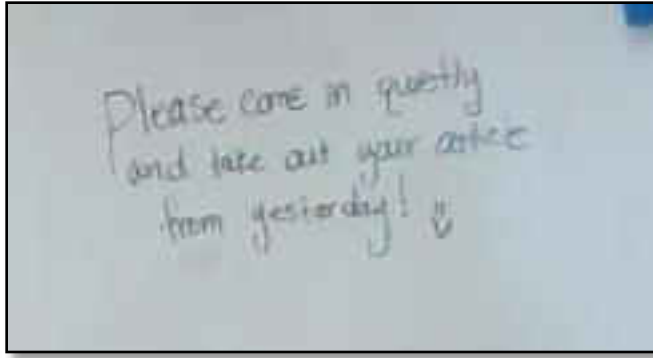 Please come in quietly
and take out your article
from yesterday! :)